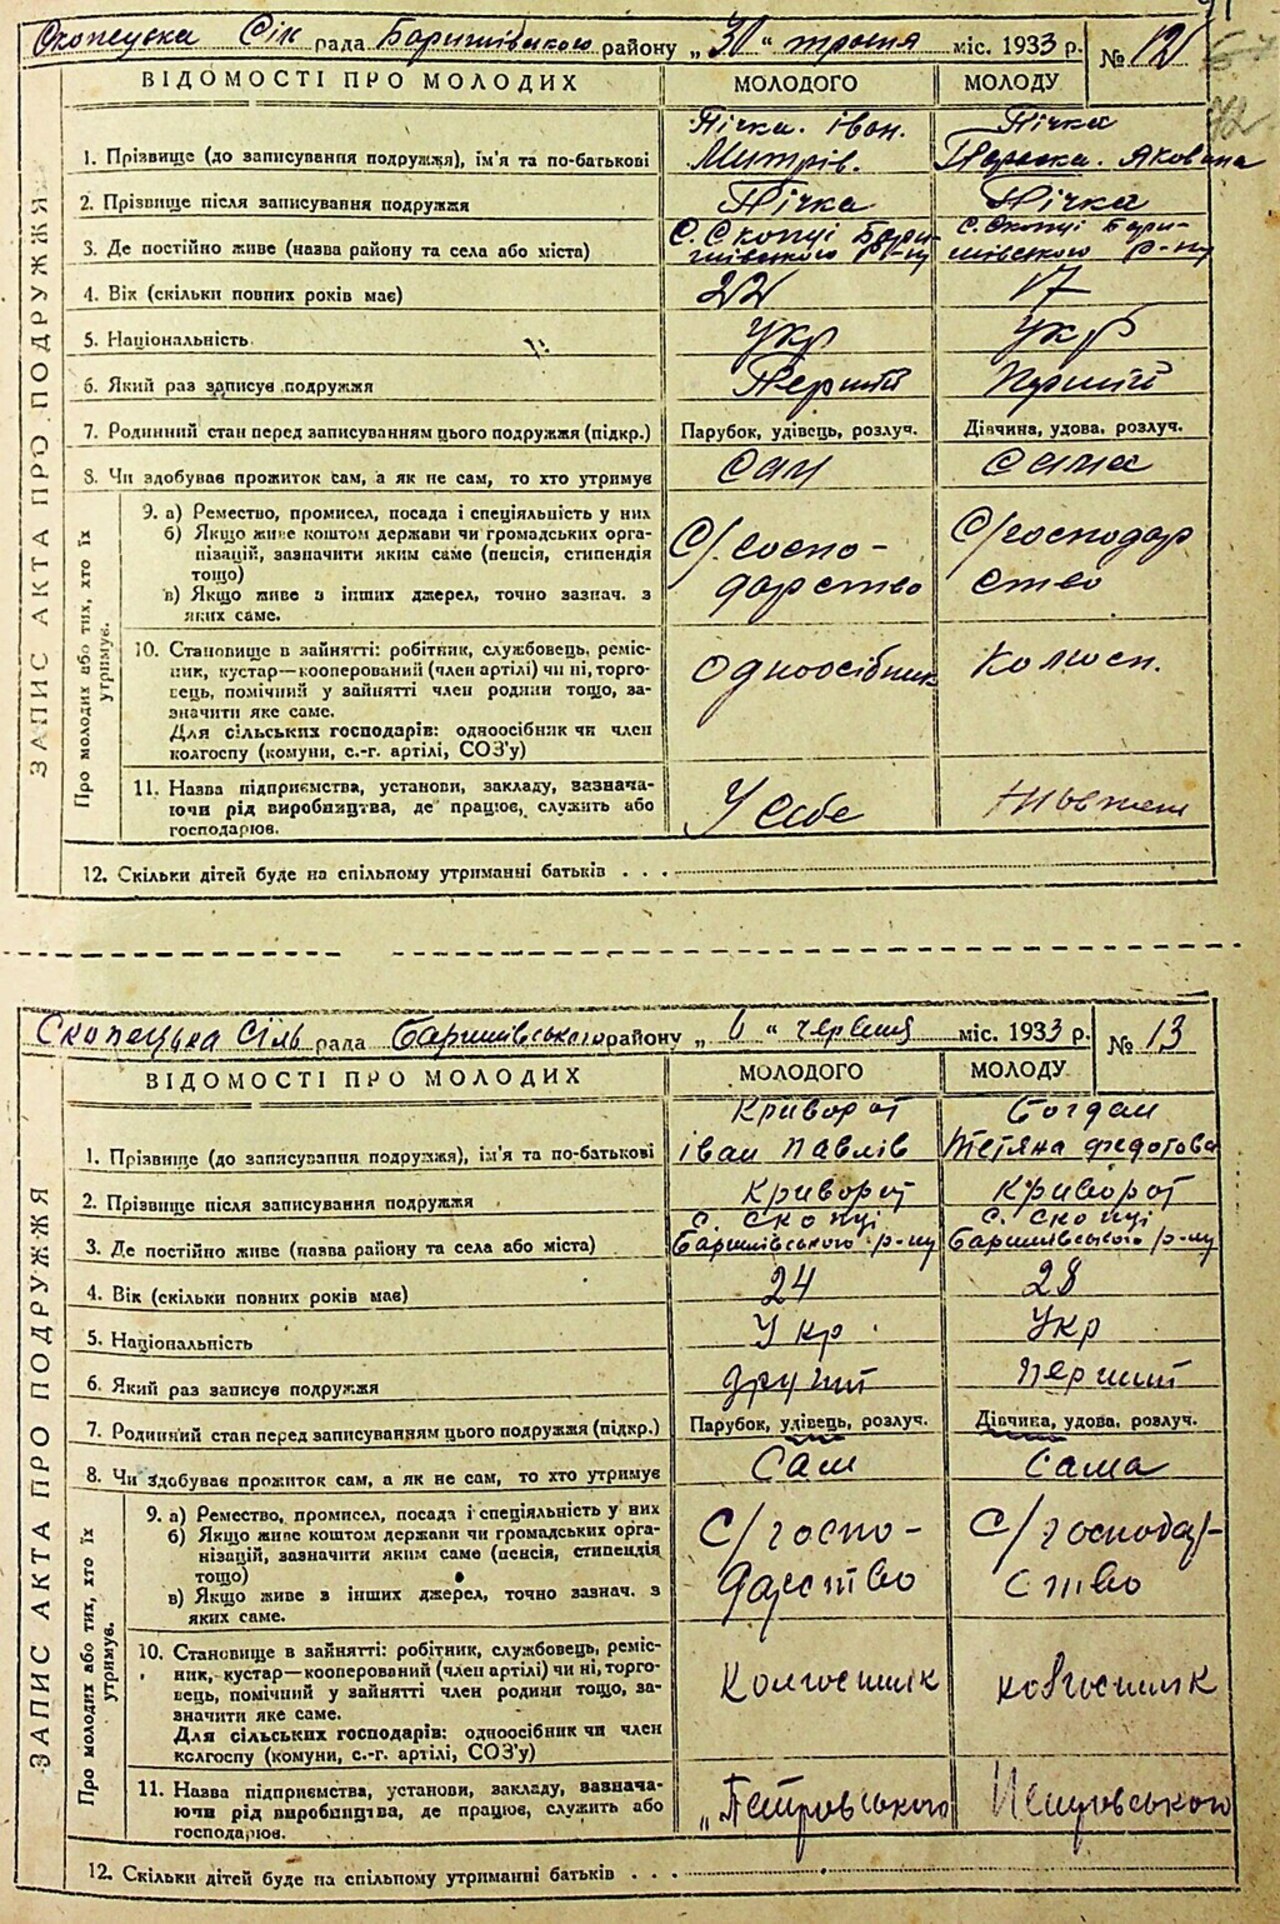 Скопецька Сіл рада Баришівського району „30“ травня міс. 1933 р. № 12
ВІДОМОСТІ ПРО МОЛОДИХ МОЛОДОГО МОЛОДУ
ЗАПИС АКТА ПРО ПОДРУЖЖЯ
1. Прізвище (до записування подружжя), ім'я та по-батькові Пічка. Іван. Митрів. Пічка Параска. Яковівна
2. Прізвище після записування подружжя Пічка Пічка
3. Де постійно живе (назва району та села або міста) С. Скопці Баришівського р-ну С. Скопці Баришівського р-ну
4. Вік (скільки повних років має) 22 17
5. Національність Укр Укр
6. Який раз записує подружжя Перший Перший
7. Родинний стан перед записуванням цього подружжя (підкр.) Парубок, удівець, розлуч. Дівчина, удова, розлуч.
8. Чи здобував прожиток сам, а як не сам, то хто утримує Сам Сама
Про молодих або тих, хто їх утримує.
9. а) Ремество, промисел, посада і спеціяльність у них
б) Якщо живе коштом держави чи громадських орга-
нізацій, зазначити яким саме (пенсія, стипендія
тощо)
в) Якщо живе з інших джерел, точно зазнач. з
яких саме.
С/госпо-
дарство
С/господар
ство
10. Становище в зайнятті: робітник, службовець, реміс-
ник, кустар—кооперований (член артілі) чи ні, торго-
вець, помічний у зайнятті член родини тощо, за-
значити яке саме.
Для сільських господарів: одноосібник чи член
колгоспу (комуни, с.-г. артілі, СОЗ'у)
Одноосібник
11. Назва підприємства, установи, закладу, зазнача-
ючи рід виробництва, де працює, служить або
господарює.
У себе
12. Скільки дітей буде на спільному утриманні батьків . . .
Скопецька Сіль рада Баришівського району „ “ червня міс. 1933 р. № 13
ВІДОМОСТІ ПРО МОЛОДИХ МОЛОДОГО МОЛОДУ
ЗАПИС АКТА ПРО ПОДРУЖЖЯ
1. Прізвище (до записування подружжя), ім'я та по-батькові Криворот Іван Павлів Богдан Тетяна Федотова
2. Прізвище після записування подружжя Криворот Криворот
3. Де постійно живе (назва району та села або міста) С. Скопці Баришівського р-ну С. Скопці Баришівського р-ну
4. Вік (скільки повних років має) 24 28
5. Національність Укр Укр
6. Який раз записує подружжя Другий Перший
7. Родинний стан перед записуванням цього подружжя (підкр.) Парубок, удівець, розлуч. Дівчина, удова, розлуч.
8. Чи здобував прожиток сам, а як не сам, то хто утримує Сам Сама
Про молодих або тих, хто їх утримує.
9. а) Ремество, промисел, посада і спеціяльність у них
б) Якщо живе коштом держави чи громадських орга-
нізацій, зазначити яким саме (пенсія, стипендія
тощо)
в) Якщо живе з інших джерел, точно зазнач. з
яких саме.
С/госпо-
дарство
С/господар-
ство
10. Становище в зайнятті: робітник, службовець, реміс-
ник, кустар—кооперований (член артілі) чи ні, торго-
вець, помічний у зайнятті член родини тощо, за-
значити яке саме.
Для сільських господарів: одноосібник чи член
колгоспу (комуни, с.-г. артілі, СОЗ'у)
Колгоспник ковгоспник
11. Назва підприємства, установи, закладу, зазнача-
ючи рід виробництва, де працює, служить або
господарює.
„Петровського Петровського
12. Скільки дітей буде на спільному утриманні батьків . . .